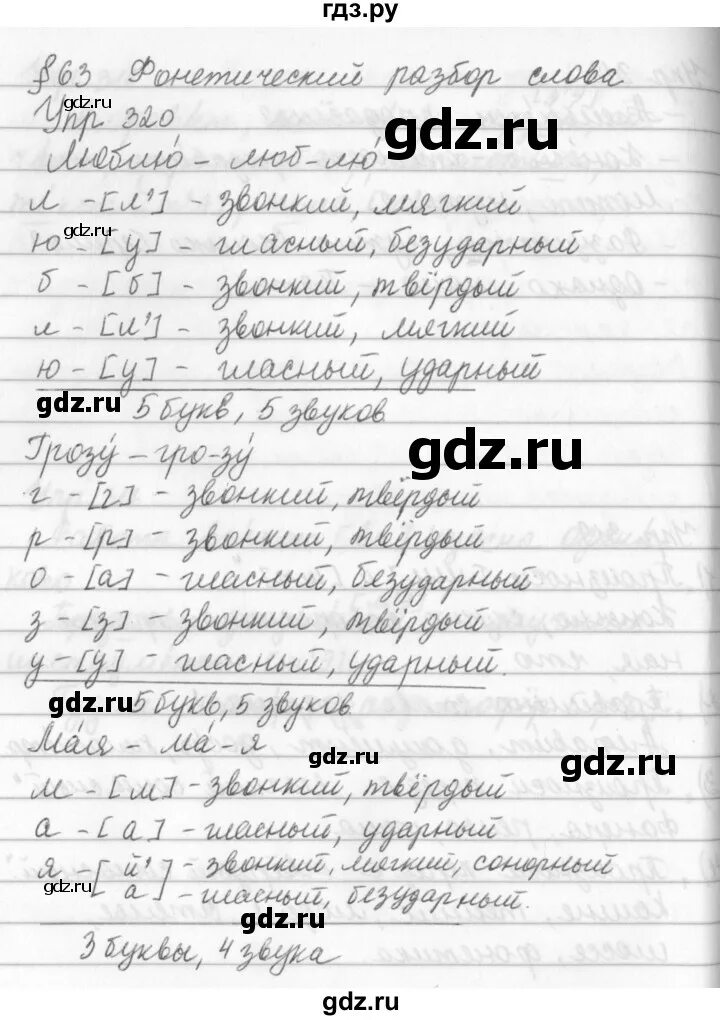 гдз.ру
§63 Фонетический разбор слова
gdz.ru
Упр 320
gdz.ru
Люблю́ – люб-лю́
л – [л'] – звонкий, мягкий
gdz.ru
ю – [у] – гласный, безударный
б – [б] – звонкий, твёрдый
л – [л'] – звонкий, мягкий
ю – [у] – гласный, ударный
gdz.ru
5 букв, 5 звуков
gdz.ru
Грозу́ – гро-зу́
г – [г] – звонкий, твёрдый
р – [р] – звонкий, твёрдый
о – [а] – гласный, безударный
з – [з] – звонкий, твёрдый
у – [у] – гласный, ударный.
gdz.ru
5 букв, 5 звуков
Ма́я – ма́-я
gdz.ru
gdz.ru
м – [м] – звонкий, твёрдый
а – [а] – гласный, ударный
я – [й' – звонкий, мягкий, сонорный
gdz.ru
а] – гласный, безударный.
gdz.ru
3 буквы, 4 звука
gdz.ru